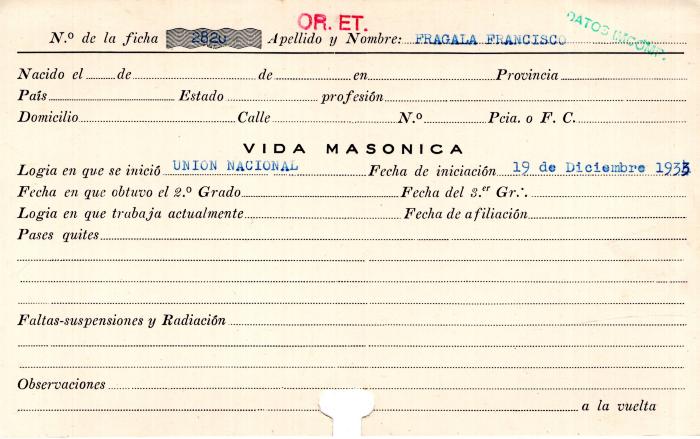 OR. ET.
DATOS INCOMP.
N.º de la ficha 2820 Apellido y Nombre: FRAGALA FRANCISCO
Nacido el de de en Provincia
País Estado profesión
Domicilio Calle N.º Pcia. o F. C.
VIDA MASONICA
Logia en que se inició UNION NACIONAL Fecha de iniciación 19 de Diciembre
Fecha en que obtuvo el 2.º Grado Fecha del 3.er Gr∴
Logia en que trabaja actualmente Fecha de afiliación
Pases quites
Faltas-suspensiones y Radiación
Observaciones
a la vuelta